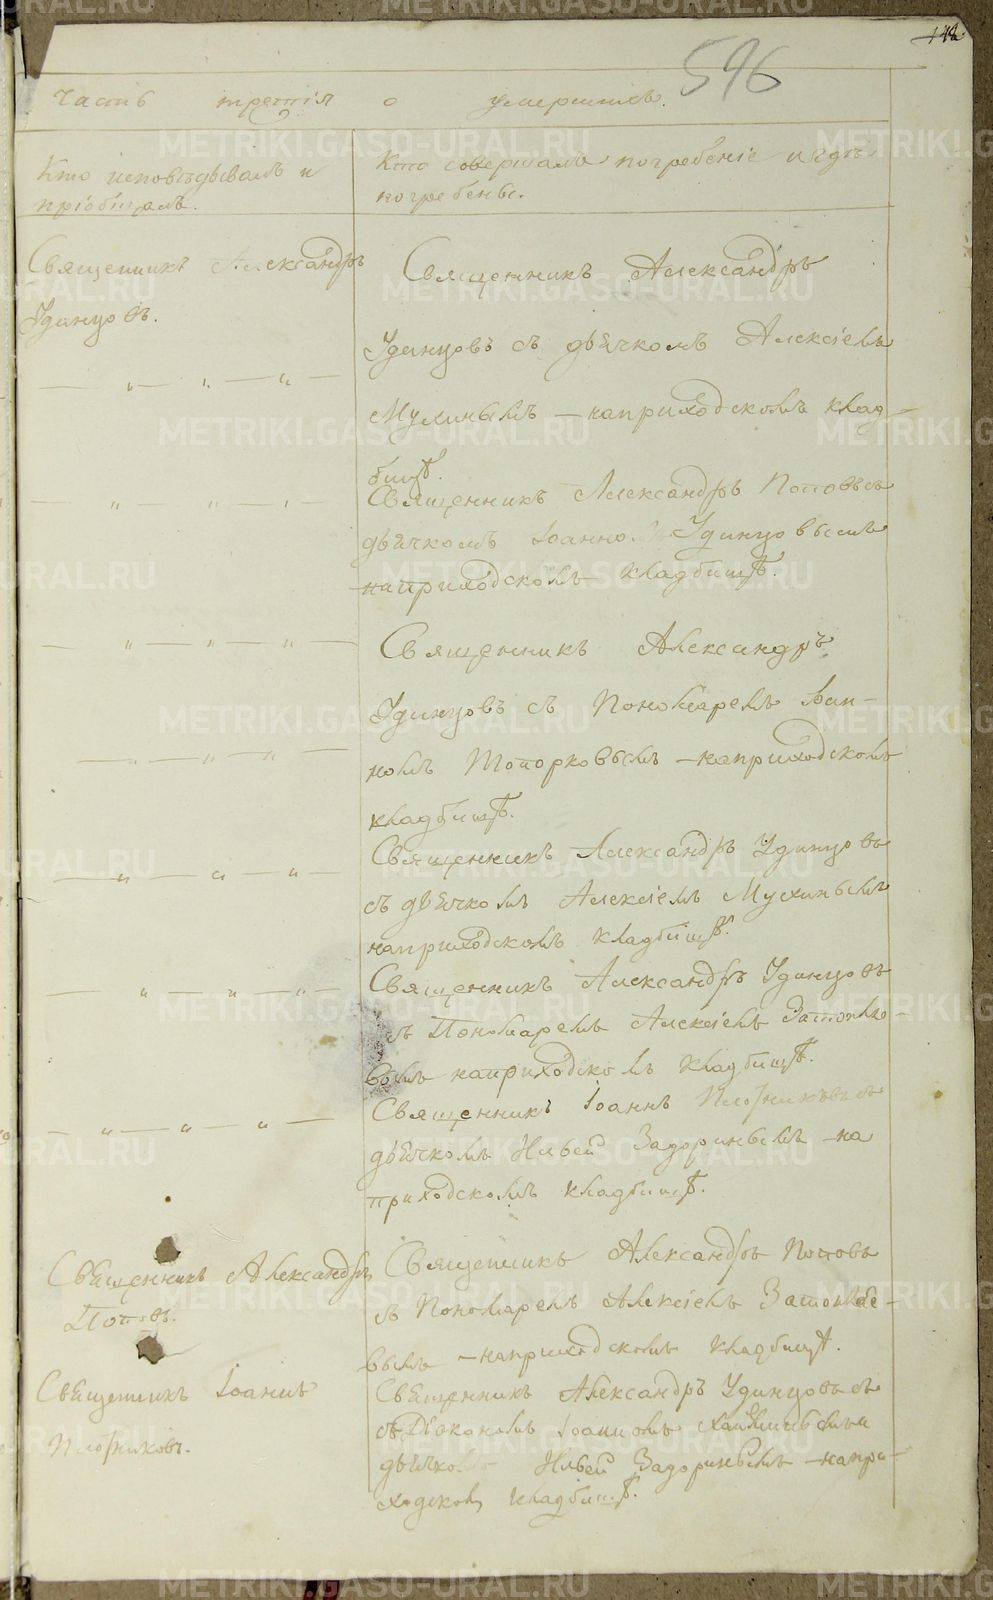 596
Часть третія о умершихъ.
Кто исповѣдывалъ и
пріобщалъ.
Кто совершалъ погребеніе и гдѣ
погребены.
Священникъ Александръ
Удинцовъ.
Священникъ Александръ
Удинцовъ съ дьячкомъ Алексіемъ
Мухинымъ на приходскомъ клад-
бищѣ.
Священникъ Александръ Поповъ съ
дьячкомъ Іоанно Удинцовымъ
на приходскомъ кладбищѣ.
Священникъ Александръ
Удинцовъ съ Пономаремъ Іоан-
номъ Топорковымъ на приходскомъ
кладбищѣ.
Священникъ Александръ Удинцовъ
съ дьячкомъ Алексіемъ Мухинымъ
на приходскомъ кладбищѣ.
Священникъ Александръ Удинцовъ
съ Пономаремъ Алексіемъ Затопляе-
вымъ на приходскомъ кладбищѣ.
Священникъ Іоаннъ Плотниковъ съ
дьячкомъ Ильей Задоринымъ на
приходскомъ кладбищѣ.
Священникъ Александръ
Поповъ.
Священникъ Александръ Поповъ
съ Пономаремъ Алексіемъ Затопляе-
вымъ на приходскомъ кладбищѣ.
Священникъ Іоаннъ
Плотниковъ.
Священникъ Александръ Удинцовъ съ
съ Діакономъ Іоанномъ и
дьячко Ильей Задоринымъ на при-
ходском кладбищѣ.
METRIKI.GASO-URAL.RU